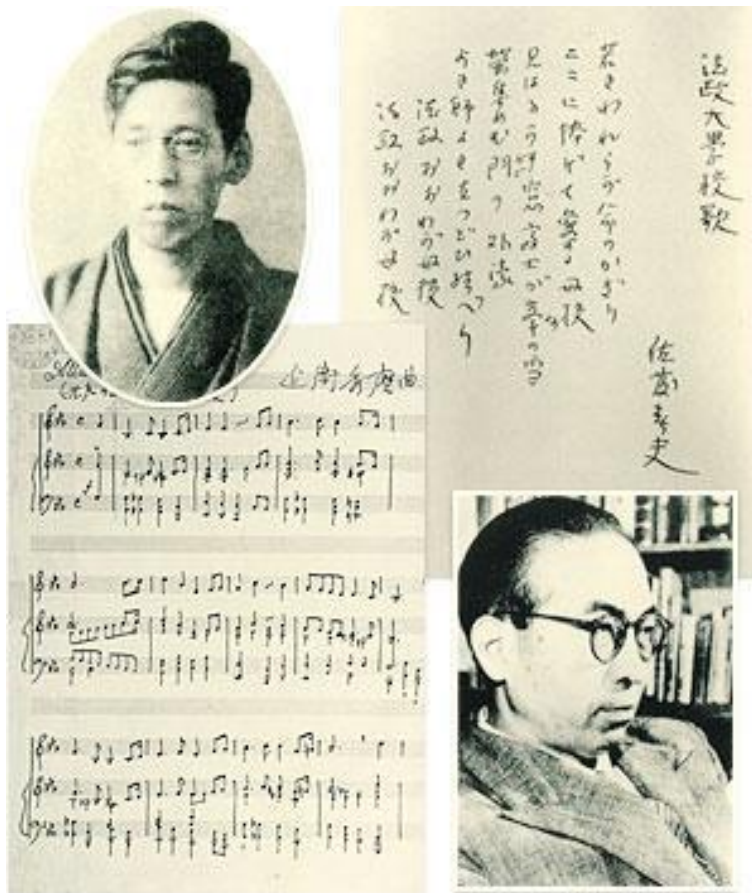 法政大學校歌
佐藤春夫
若きわれらが命のかぎり
ここに捧げて愛する母校
見はるかす窓富士が峯の雪
蛍集めむ門の外濠
よき師よき友つどひ結べり
法政おおわが母校
法政おおわが母校
近衛秀麿曲